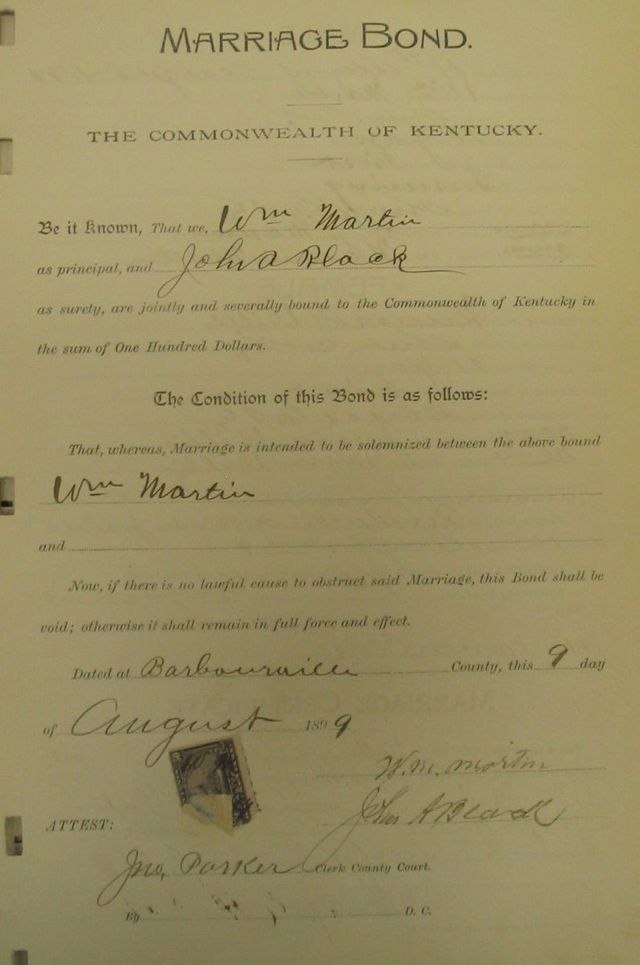 MARRIAGE BOND.
THE COMMONWEALTH OF KENTUCKY.
Be it Known, That we, Wm Martin
as principal, and John A Black
as surety, are jointly and severally bound to the Commonwealth of Kentucky in
the sum of One Hundred Dollars.
The Condition of this Bond is as follows:
That, whereas, Marriage is intended to be solemnized between the above bound
Wm Martin
and
Now, if there is no lawful cause to obstruct said Marriage, this Bond shall be
void; otherwise it shall remain in full force and effect.
Dated at Barbourville County, this 9 day
of August 1899
W.m. Martin
John A Black
ATTEST:
Jno, Parker Clerk County Court.
By D. C.